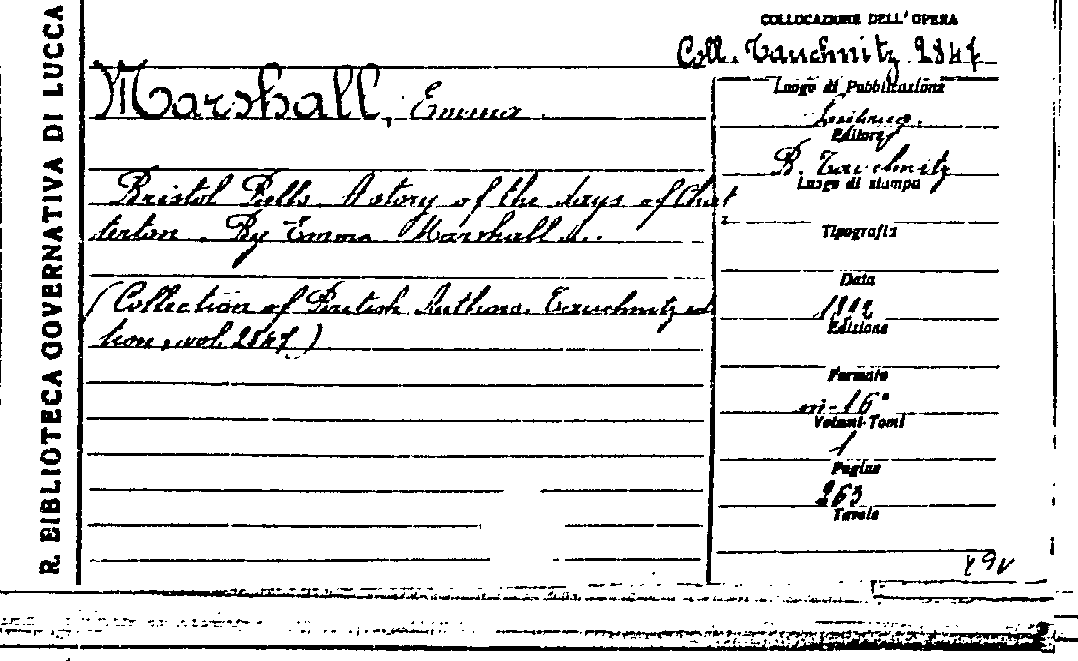 R. BIBLIOTECA GOVERNATIVA DI LUCCA
COLLOCAZIONE DELL' OPERA
Coll. Tauchnitz 2847
Marshall, Emma
Bristol Bells. A story of the days of Chat
terton. By Emma Marshall...
(Collection of British Authors. Tauchnitz edi
tion, vol. 2847)
Luogo di Pubblicazione
Editore
B. Tauchnitz
Luogo di stampa
Tipografia
Data
1892
Edizione
Formato
in-16°
Volumi-Tomi
1
Pagine
263
Tavole